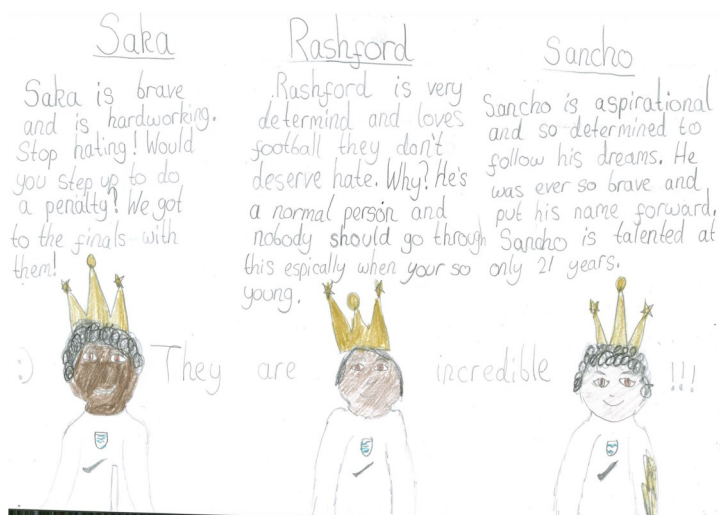 Saka
Saka is brave
and is hardworking.
Stop hating! Would
you step up to do
a penalty? We got
to the finals with
them!
Rashford
Rashford is very
determind and loves
football they don't
deserve hate. Why? He's
a normal person and
nobody should go through
this espically when your so
young.
Sancho
Sancho is aspirational
and so determined to
follow his dreams. He
was ever so brave and
put his name forward,
Sancho is talented at
only 21 years.
:) They are incredible !!!